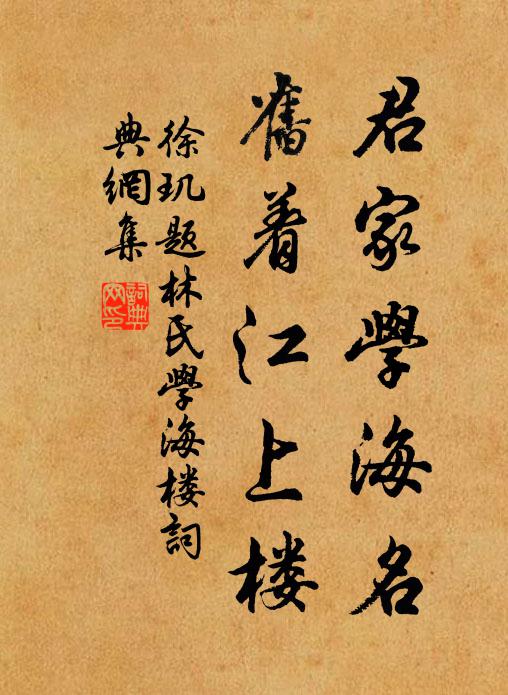 君家學海名
舊着江上楼
徐玑題林氏學海楼詞
典網集
詞典
网印